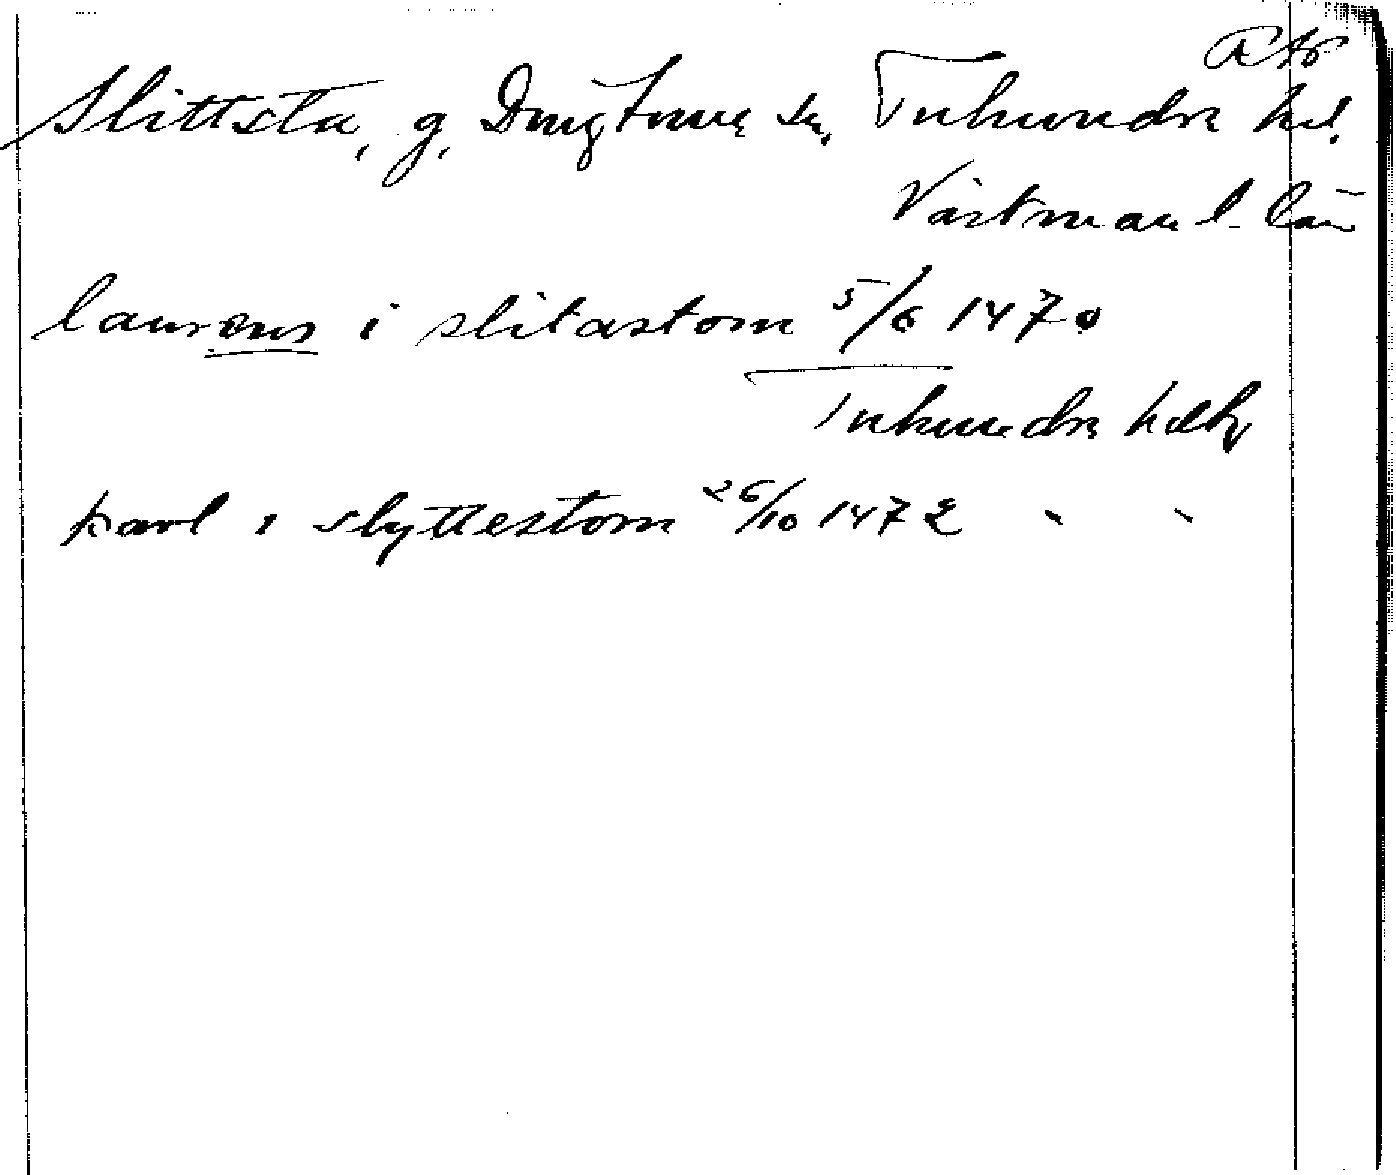 Slittsta, g, Dingtuna sn. Tuhundra hd.
Västmanl. län
laurens i slitastom 5/6 1470
Tuhundra hdh
karl i slyttestom 26/10 1472 " "